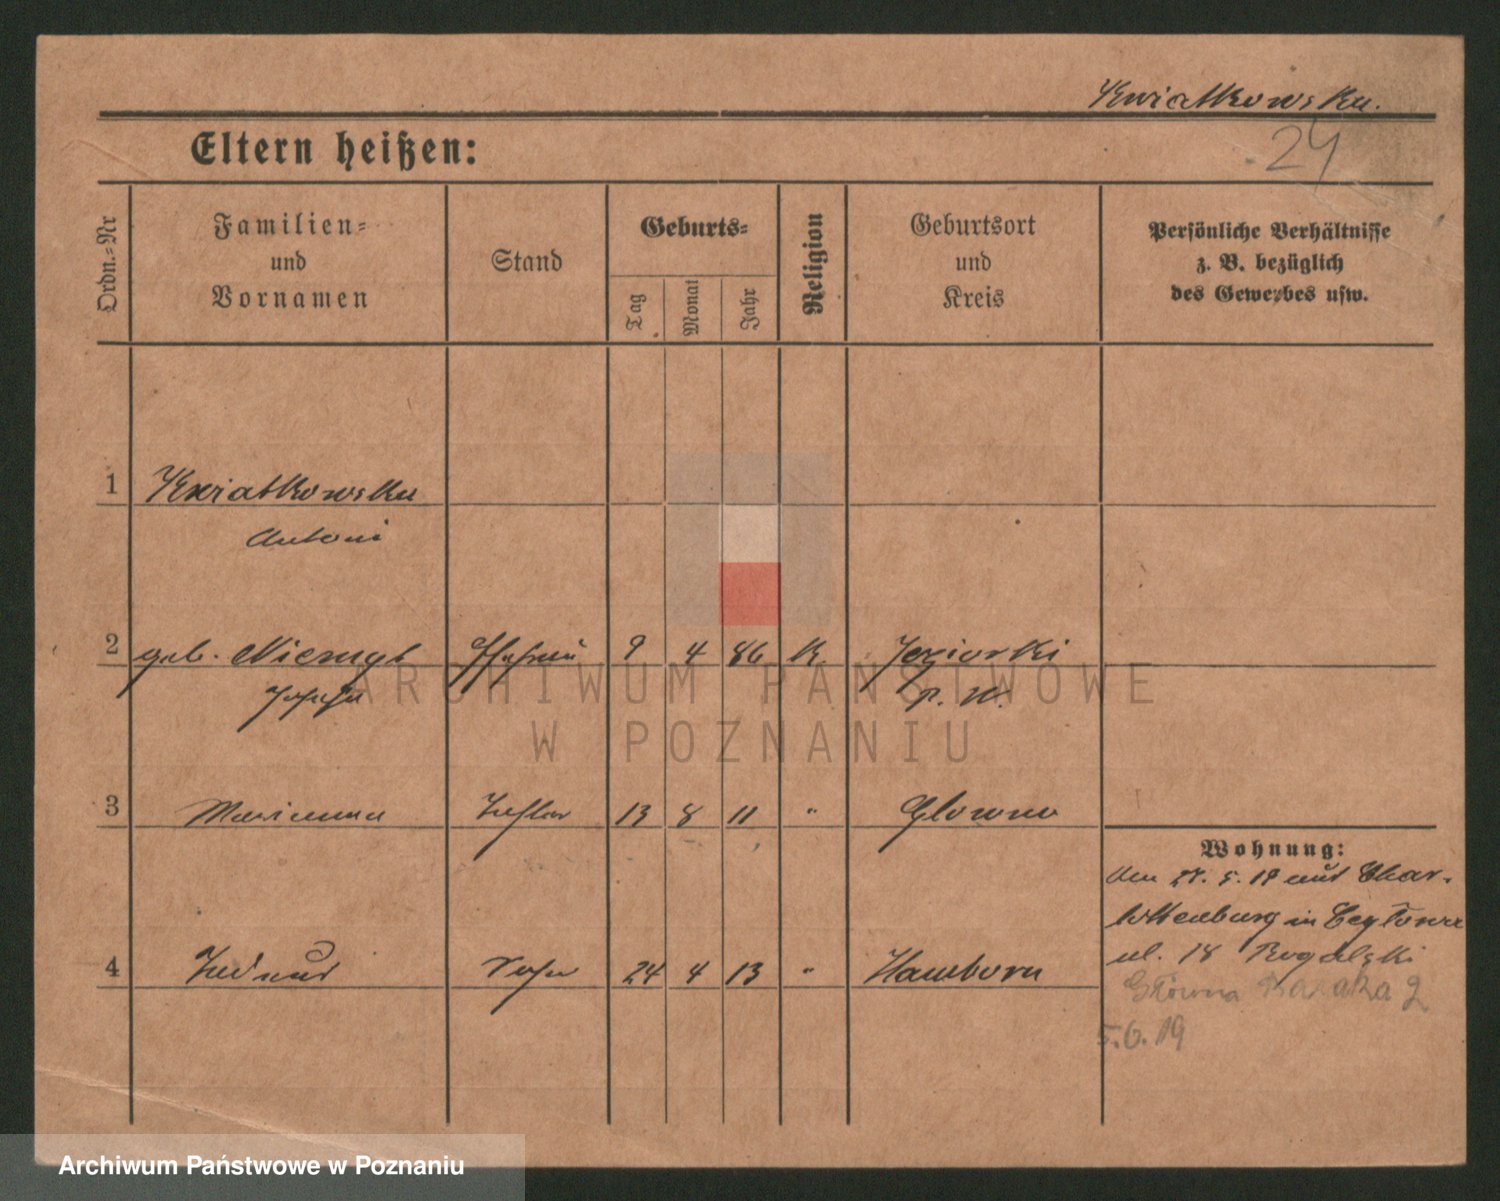 Kwiatkowska.
24
Eltern heißen:
Ordn.-Nr
Familien-
und
Vornamen
Stand
Geburts-
Tag
Monat
Jahr
Religion
Geburtsort
und
Kreis
Persönliche Verhältnisse
z. B. bezüglich
des Gewerbes usw.
1 Kwiatkowska
Antoni
2 geb. Ehefrau 9 4 86 K. Jeziorki
Josefa P. W.
3 Marianna Tochter 13 8 11 " Glowno
Wohnung:
Am 27. 5. 19 aus Char-
lottenburg in
4 Sohn 24 4 13 " Hamborn
ul. 18 Rogalski
Główna Baraka 2
5.6.19
ARCHIWUM PAŃSTWOWE
W POZNANIU
Archiwum Państwowe w Poznaniu